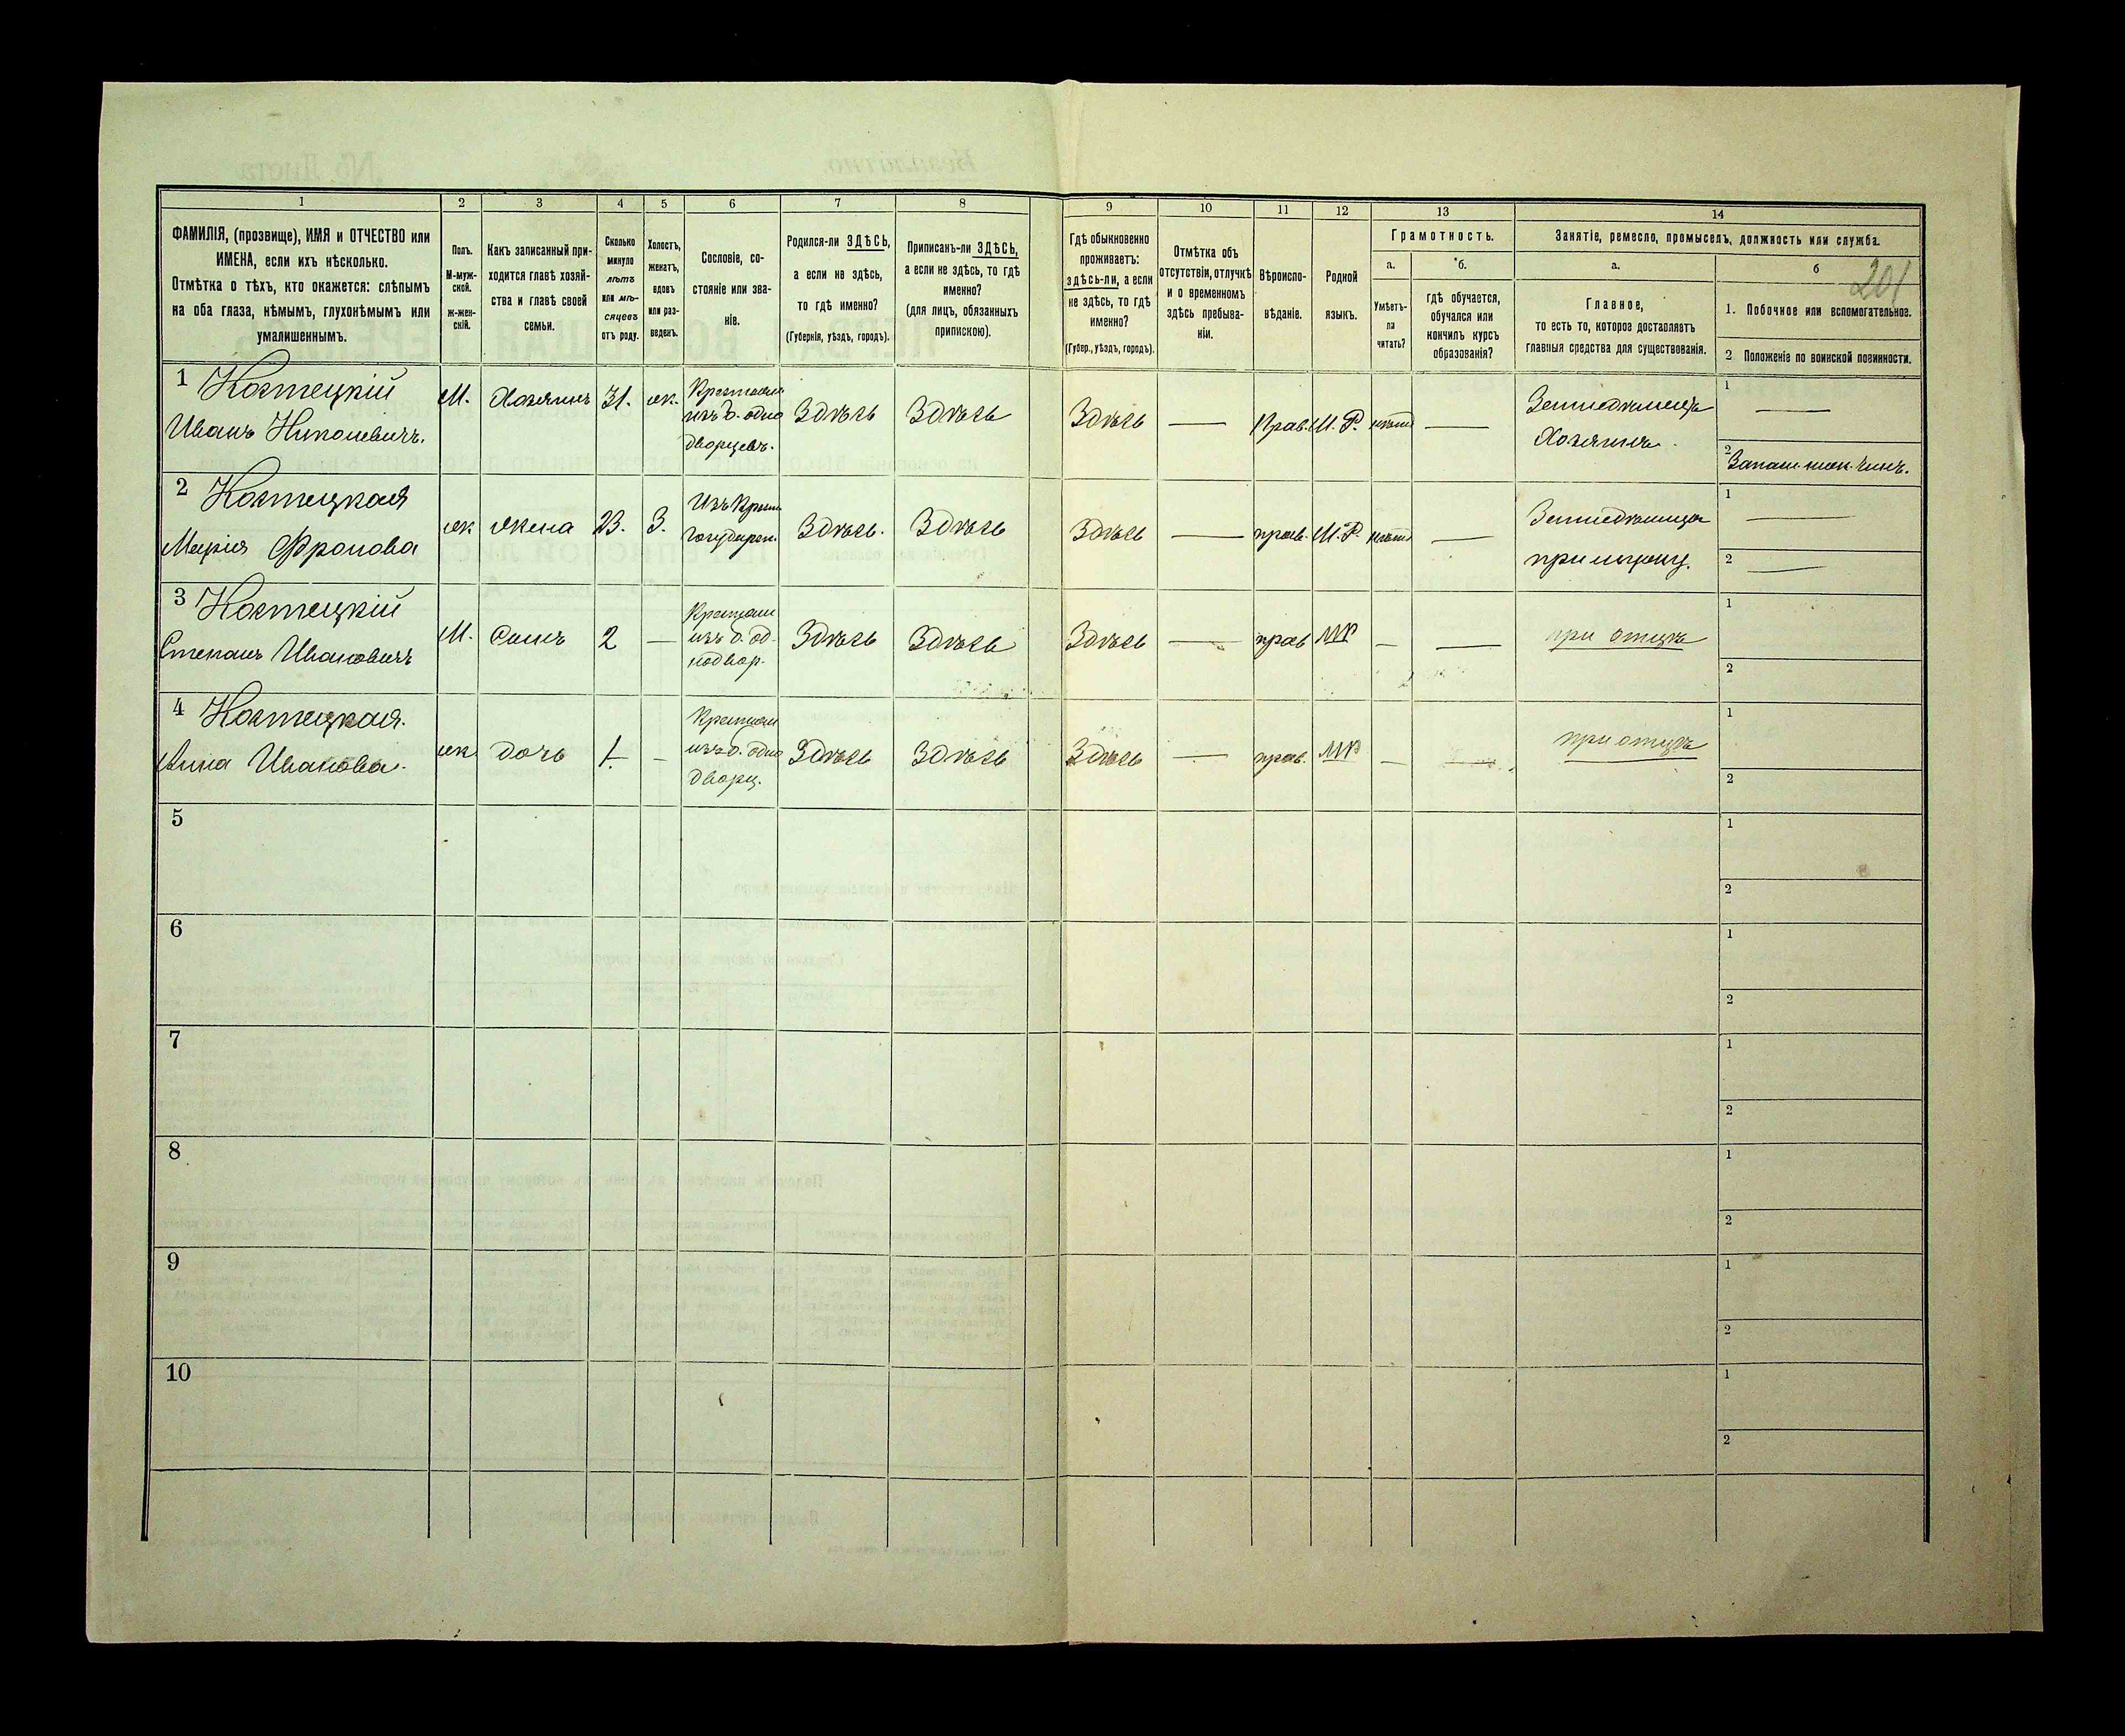 1
2
3
4
5
6
7
8
9
10
11
12
13
14
ФАМИЛІЯ, (прозвище), ИМЯ и ОТЧЕСТВО или
ИМЕНА, если ихъ нѣсколько.
Отмѣтка о тѣхъ, кто окажется: слѣпымъ
на оба глаза, нѣмымъ, глухонѣмымъ или
умалишеннымъ.
Полъ.
М-муж-
ской.
ж-жен-
скій.
Какъ записанный при-
ходится главѣ хозяй-
ства и главѣ своей
семьи.
Сколько
минуло
лѣтъ
или мѣ-
сяцевъ
отъ роду.
Холостъ,
женатъ,
вдовъ
или раз-
веденъ.
Сословіе, со-
стояніе или зва-
ніе.
Родился-ли ЗДѢСЬ,
а если не здѣсь,
то гдѣ именно?
(Губернія, уѣздъ, городъ).
Приписанъ-ли ЗДѢСЬ,
а если не здѣсь, то гдѣ
именно?
(для лицъ, обязанныхъ
припискою).
Гдѣ обыкновенно
проживаетъ:
здѣсь-ли, а если
не здѣсь, то гдѣ
именно?
(Губер., уѣздъ, городъ).
Отмѣтка объ
отсутствіи, отлучкѣ
и о временномъ
здѣсь пребыва-
ніи.
Вѣроиспо-
вѣданіе.
Родной
языкъ.
Грамотность.
а.
Умѣетъ-
ли
читать?
б.
гдѣ обучается,
обучался или
кончилъ курсъ
образованія?
Занятіе, ремесло, промыселъ, должность или служба.
а.
Главное,
то есть то, которое доставляетъ
главныя средства для существованія.
б
201
1. Побочное или вспомогательное.
2 Положеніе по воинской повинности.
1 Костецкій
Иванъ Никоневичъ.
М.
Хозяинъ
31.
ж.
Крестьян
изъ б. одно
дворцевъ.
Здѣсь
Здѣсь
Здѣсь
—
Прав.
М. Р.
нѣтъ
—
Земледѣлецъ
Хозяинъ
1 —
2 Запасн. ниж. чинъ.
2 Костецкая
Марія Фролова
ж
жена
23.
З.
Изъ Крест
Государ.
Здѣсь.
Здѣсь
Здѣсь
—
прав.
М. Р.
нѣтъ
—
Земледѣлица
при мужу.
1 —
2 —
3 Костецкій
Степанъ Ивановичъ
М.
Сынъ
2
—
Крестьян
изъ б. од-
нодвор.
Здѣсь
Здѣсь
Здѣсь
—
прав
МР
—
—
при отцѣ
1
2
4 Костецкая.
Анна Иванова.
ж
дочь
1.
-
Крестьян
изъ б. одно
дворц.
Здѣсь
Здѣсь
Здѣсь
—
прав.
МР
—
—
при отцѣ
1
2
5
1
2
6
1
2
7
1
2
8
1
2
9
1
2
10
1
2